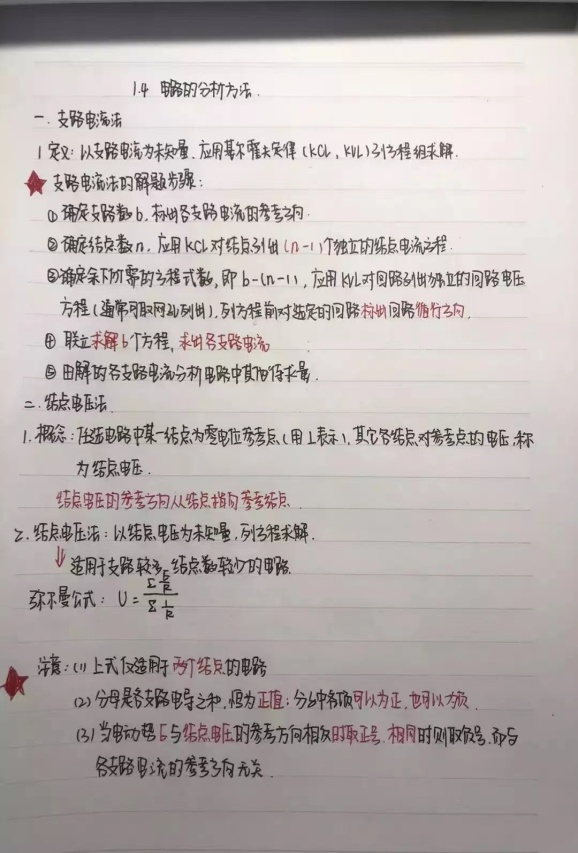 1.4 电路的分析方法.
一. 支路电流法
1 定义: 以支路电流为未知量. 应用基尔霍夫定律 (KCL, KVL) 列方程组求解.
支路电流法的解题步骤:
① 确定支路数b, 标出各支路电流的参考方向.
② 确定结点数n, 应用KCL对结点列出(n-1)个独立的结点电流方程.
③ 确定余下所需的方程式数, 即b-(n-1), 应用KVL对回路列出独立的回路电压
方程(通常可取网孔列出), 列方程前对选定的回路标出回路循行方向.
④ 联立求解b个方程, 求出各支路电流
⑤ 由解的各支路电流分析电路中其他待求量.
二. 结点电压法.
1. 概念: 任选电路中某一结点为零电位参考点(用⊥表示), 其它各结点对参考点的电压, 称
为结点电压.
结点电压的参考方向从结点指向参考结点.
2. 结点电压法: 以结点电压为未知量, 列方程求解.
↓ 适用于支路较多, 结点数较少的电路.
弥尔曼公式: U = Σ E/R / Σ 1/R
注意: (1) 上式仅适用于两个结点的电路
(2) 分母是各支路电导之和, 恒为正值; 分子中各项可以为正, 也可以为负.
(3) 当电动势E与结点电压的参考方向相反时取正号, 相同时则取负号. 而与
各支路电流的参考方向无关.